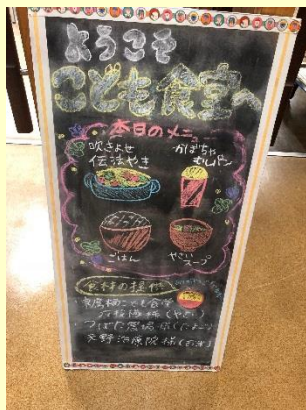 ようこそ
こども食堂へ
本日のメニュー
吹きよせ
伝法やき
かぼちゃ
むしパン
ごはん
やさい
スープ
食材の提供
こども食堂
様(やさい)
つばた農場様(たまご)
天野治療院様(お米)